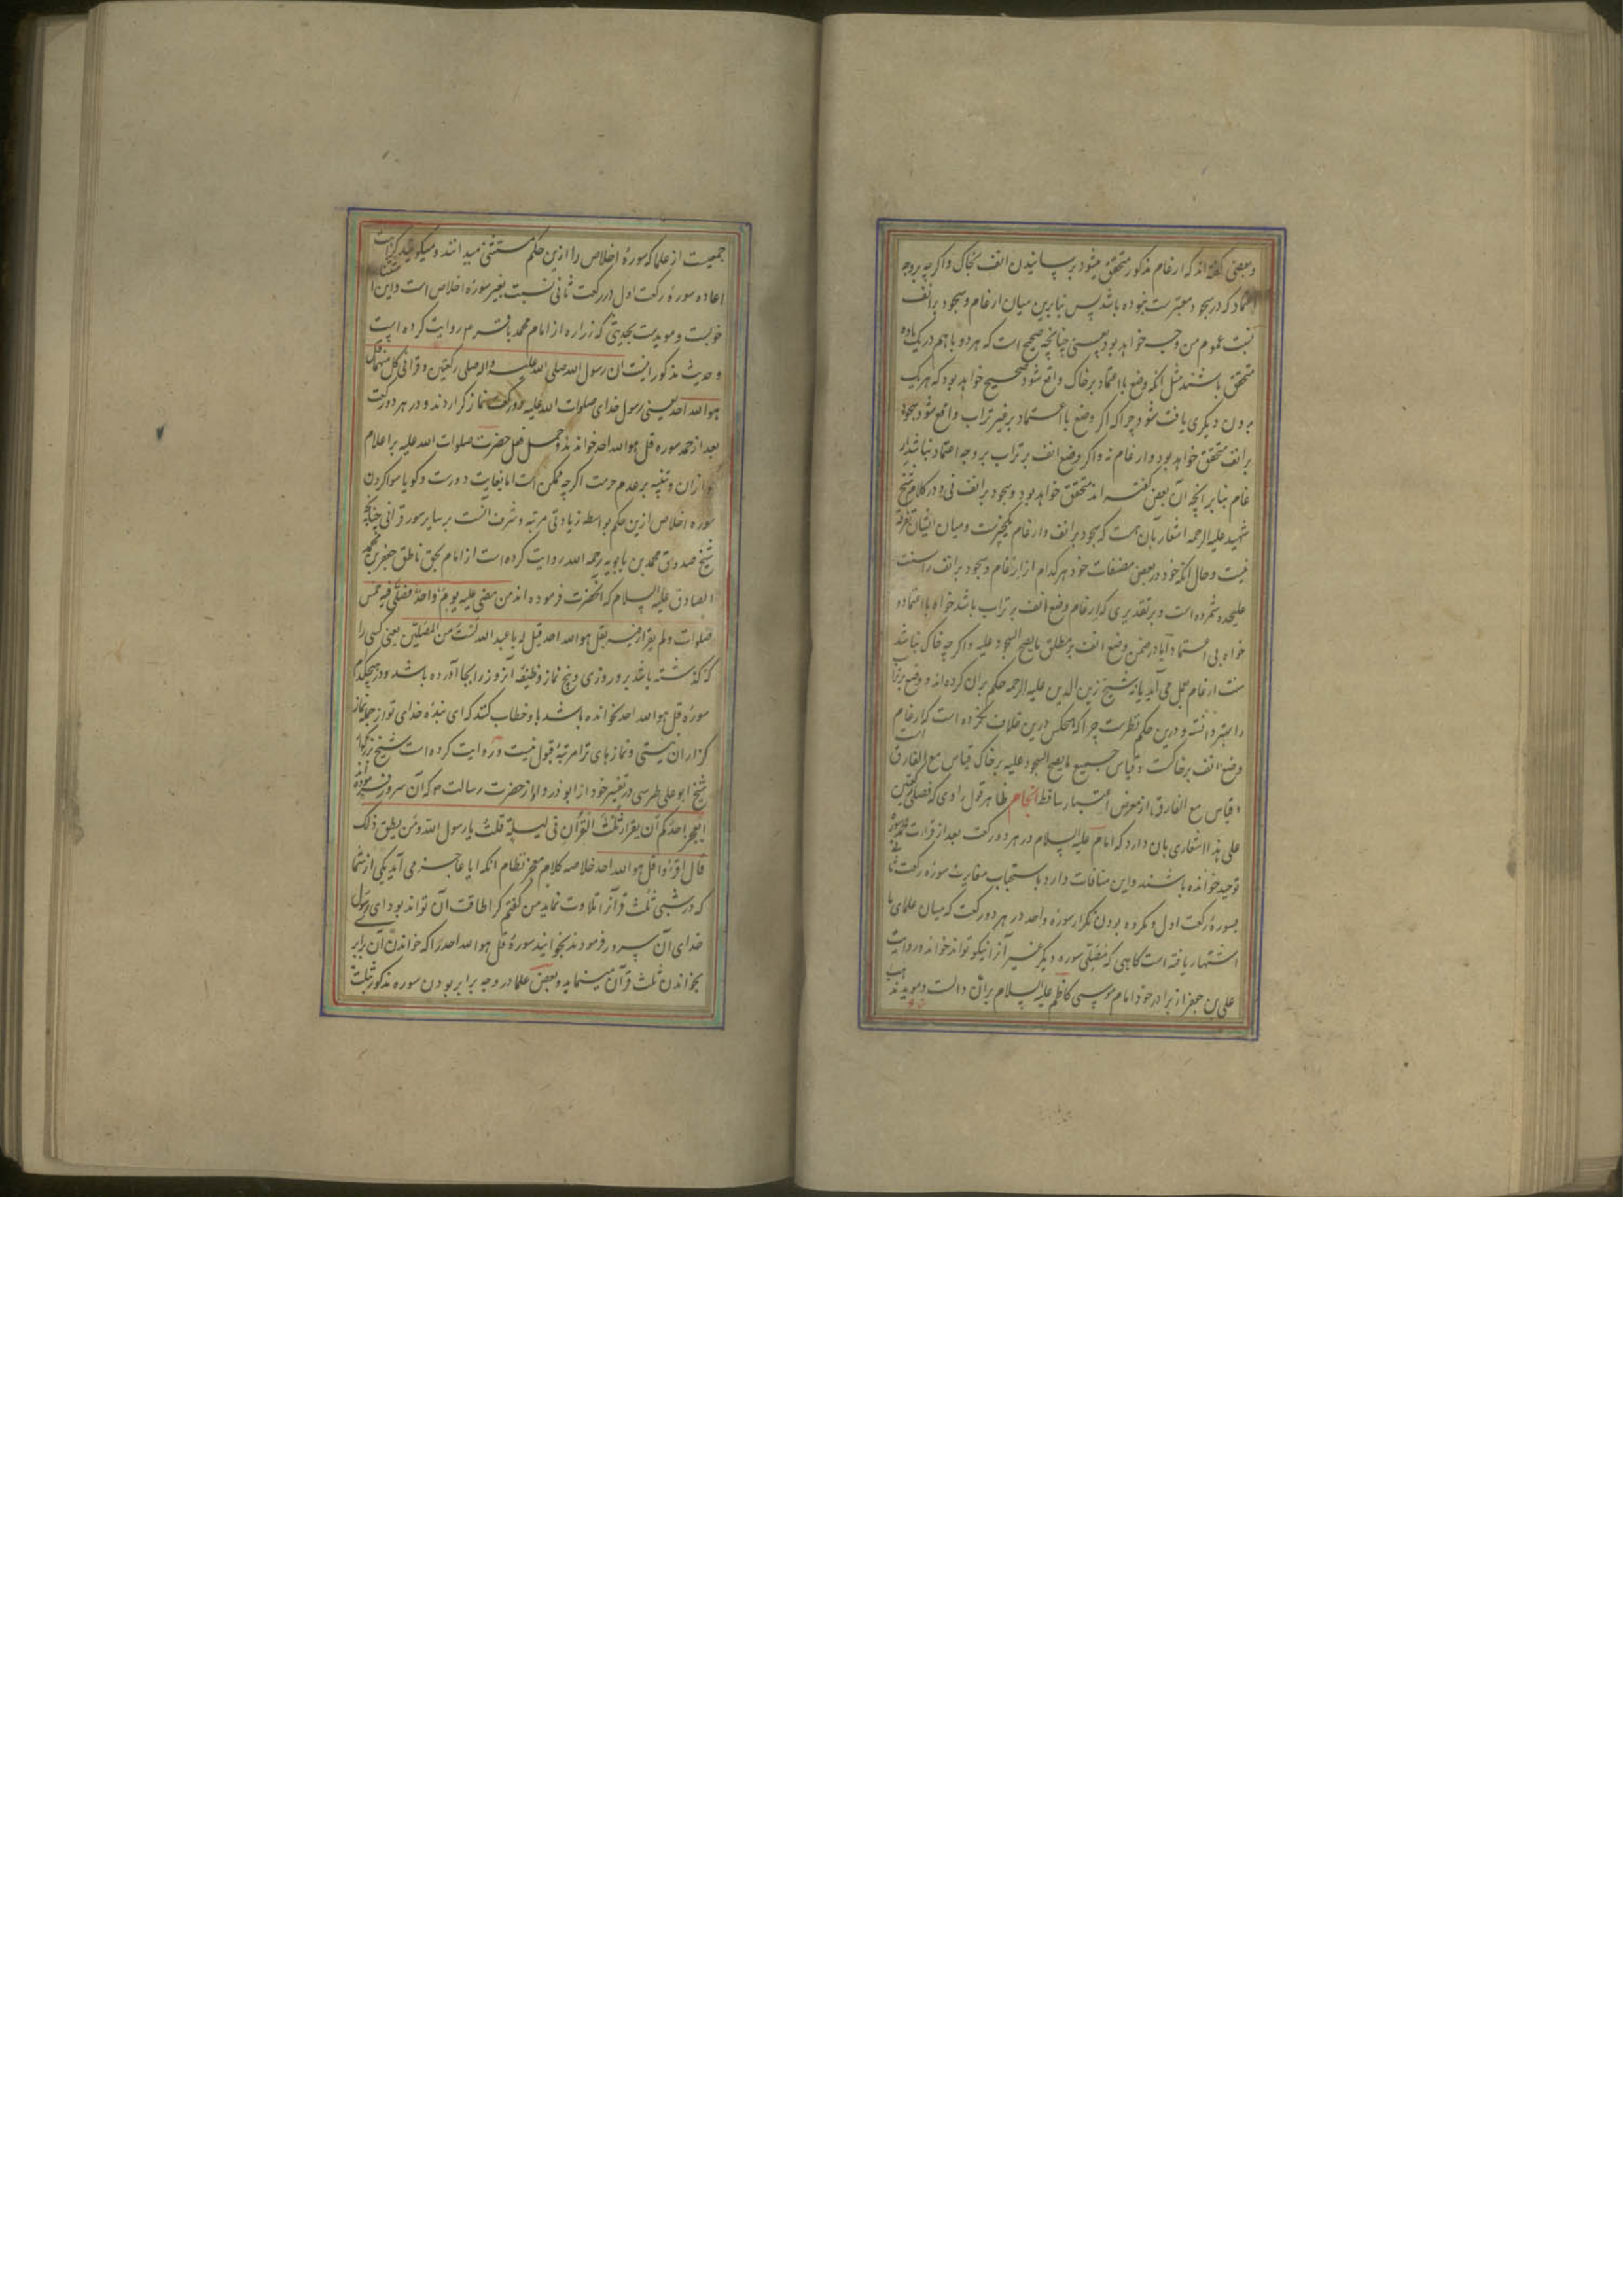 و بعضی گفته اند که ارغام مذکور متحقق میشود برسانیدن انف بخاک و اگرچه بروجه
اعتماد که در سجود معتبرست نبوده باشد پس بنابرین میان ارغام و سجود بر انف
نسبت عموم من وجه خواهد بود یعنی چنانچه صحیح است که هر دو با هم در یک ماده
متحقق باشند مثل آنکه وضع با اعتماد بر خاک واقع شود صحیح خواهد بود که هر یک
بدون دیگری یافت شود چرا که اگر وضع با اعتماد بر غیر تراب واقع شود سجود
بر انف متحقق خواهد بود و ارغام نه و اگر وضع انف بر تراب بر وجه اعتماد نباشد ار
غام بنابر آنچه آن بعض گفته اند متحقق خواهد بود و سجود بر انف نی و در کلام شیخ
شهید علیه الرحمه اشعار بآن هست که سجود بر انف و ارغام یکچیزست و میان ایشان تفرقه
نیست و حال آنکه خود در بعضی مصنفات خود هر کدام از ارغام و سجود بر انف را سنت
علیحده شمرده است و بر تقدیری که ارغام وضع انف بر تراب باشد خواه با اعتماد و
خواه بی اعتماد آیا در ضمن وضع انف بر مطلق ما یصح السجود علیه و اگرچه خاک نباشد
سنت ارغام بعمل می آید یا نه شیخ زین الدین علیه الرحمه حکم بران کرده اند و وضع بر تراب
را بهتر دانسته و درین حکم نظرست چرا که هیچکس درین خلاف نکرده است که ارغام
وضع انف بر خاکست و قیاس جمیع ما یصح السجود علیه بر خاک قیاس مع الفارق است
و قیاس مع الفارق از معرض اعتبار ساقط انجام ظاهر قول راوی که فصلی رکعتین
علی هذا اشعاری بان دارد که امام علیه السلام در هر دو رکعت بعد از قرائت حمد سوره
توحید خوانده باشند و این منافات دارد باستحباب مغایرت سوره رکعت ثانی
بسورهٔ رکعت اول و مکروه بودن تکرار سوره واحد در هر دو رکعت که میان علمای ما
اشتهار یافته است گاهی که مصلّی سوره دیگر غیر آنرا نیکو تواند خواند و روایت
علی بن جعفر از برادر خود امام موسی کاظم علیه السلام بران دالست و مؤید مذهب
جمعیست از علما که سورهٔ اخلاص را ازین حکم مستثنی میدانند و میگویند کراهت
اعاده سورهٔ رکعت اول در رکعت ثانی نسبت بغیر سوره اخلاص است و این استثنا
خوبست و مویدست بحدیثی که زراره از امام محمد باقر م روایت کرده است
و حدیث مذکور اینست ان رسول الله صلی الله علیه واله صلی رکعتین و قرأ فی کل منهما قل
هو الله احد یعنی رسول خدای صلوات الله علیه دو رکعت نماز گزاردند و در هر دو رکعت
بعد از حمد سوره قل هو الله احد خواندند و حمل فعل حضرت صلوات الله علیه بر اعلام
جواز ان و تنبیه بر عدم حرمت اگرچه ممکن است اما بغایت دورست و گویا سوا کردن
سوره اخلاص ازین حکم بواسطه زیادتی مرتبه و شرف آنست بر سایر سور قرآنی چنانچه
شیخ صدوق محمد بن بابویه رحمه الله روایت کرده است از امام بحق ناطق جعفر بن محمد
الصادق علیه السلام که آنحضرت فرموده اند من مضی علیه یومٌ واحدٌ فصلّی فیه خمس
صلوات ولم یقرأ فیه بقل هو الله احد قیل له یا عبد الله لستَ من المصلّین یعنی کسی را
که گذشته باشد بر و روزی و پنج نماز وظیفه آنروز را بجا آورده باشد و در هیچکدام
سورهٔ قل هو الله احد نخوانده باشد باو خطاب کنند که ای بندهٔ خدای تو از جمله نماز
گزاران نیستی و نمازهای ترا مرتبهٔ قبول نیست و روایت کرده است شیخ بزرگوار
شیخ ابو علی طبرسی در تفسیر خود از ابو درداء از حضرت رسالت م که آن سرور فرموده اند
ایعجز احدکم ان یقرأ ثلثَ القرآن فی لیلةٍ قلتُ یا رسول الله و من یطیق ذلک
قال اقرؤا قل هو الله احد خلاصه کلام معجز نظام آنکه ایا عاجز می آید یکی از شما
که در شبی ثلث قرآنرا تلاوت نماید من گفتم کرا طاقت آن تواند بود ای رسول
خدای آن سرور فرمودند بخوانید سورهٔ قل هو الله احد را که خواندن آن برابر
بخواندن ثلث قرآن مینماید و بعض علما در وجه برابر بودن سوره مذکور بثلث